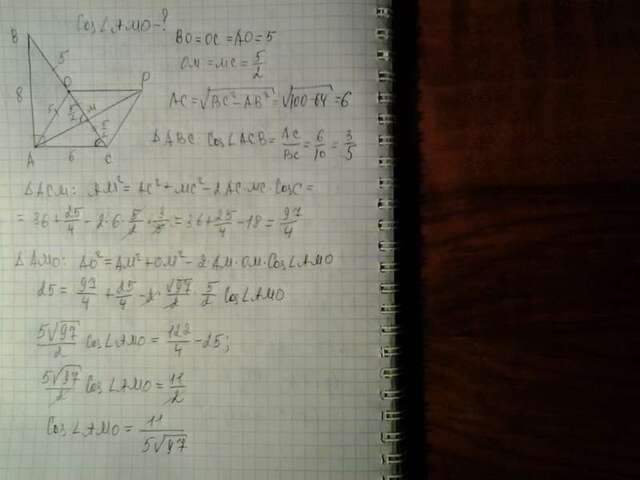 Cos∠AMO-?
BO=OC=AO=5
OM=MC=5/2
AC=√(BC²-AB²)=√(100-64)=6
ΔABC: Cos∠ACB=AC/BC=6/10=3/5
B
5
O
P
8
5
5/2
M
5/2
A
6
C
ΔACM: AM²=AC²+MC²-2AC·MC·CosC=
=36+25/4-2·6·5/2·3/5=36+25/4-18=97/4
ΔAMO: AO²=AM²+OM²-2·AM·OM·Cos∠AMO
25=97/4+25/4-2·√97/2·5/2 Cos∠AMO
5√97/2 Cos∠AMO=122/4-25;
5√97/2 Cos∠AMO=11/2
Cos∠AMO=11/5√97